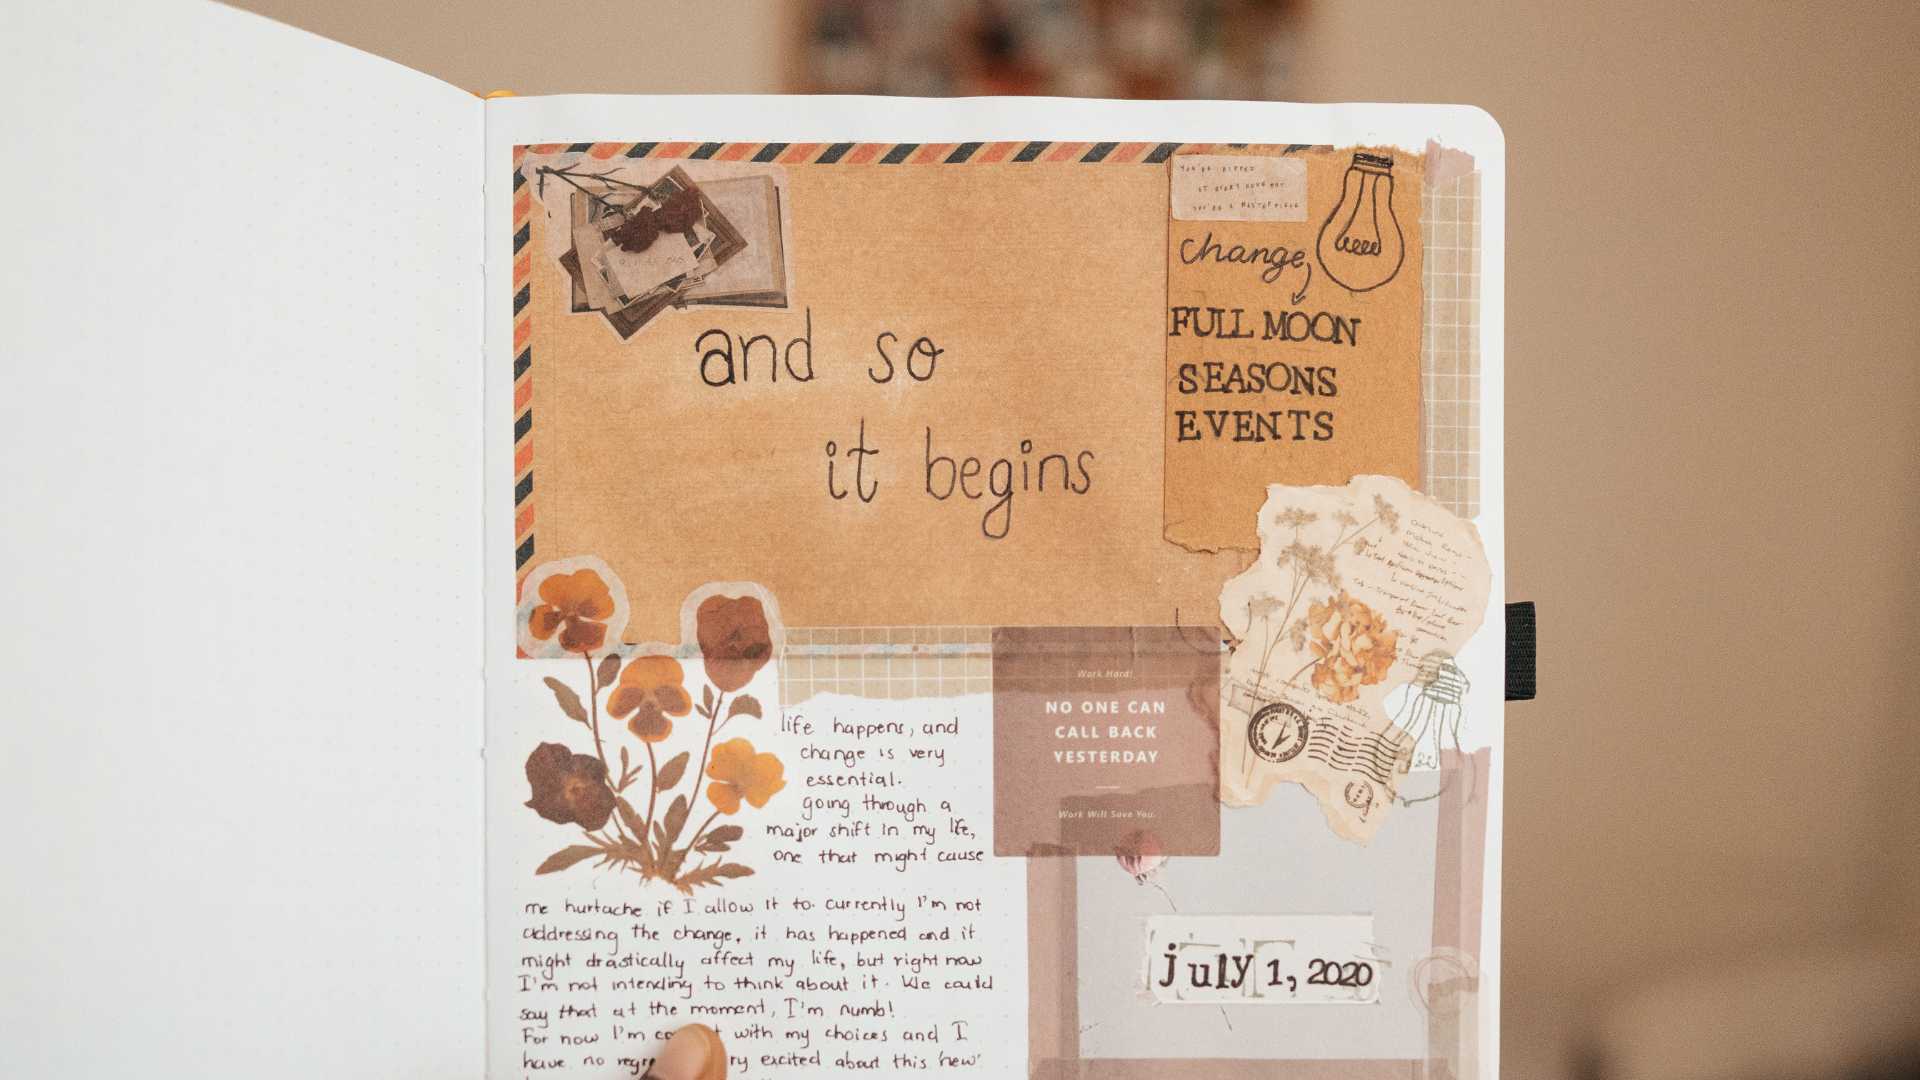 and so
it begins
YOU'RE RIPPED
AT EVERY EDGE BUT
YOU'RE A MASTERPIECE
change
FULL MOON
SEASONS
EVENTS
Work Hard!
NO ONE CAN
CALL BACK
YESTERDAY
Work Will Save You.
life happens, and
change is very
essential.
going through a
major shift in my life,
one that might cause
me hurtache if I allow it to. currently I'm not
addressing the change, it has happened and it
might drastically affect my life, but right now
I'm not intending to think about it. We could
say that at the moment, I'm numb!
For now I'm with my choices and I
have no excited about this 'new'
july 1, 2020